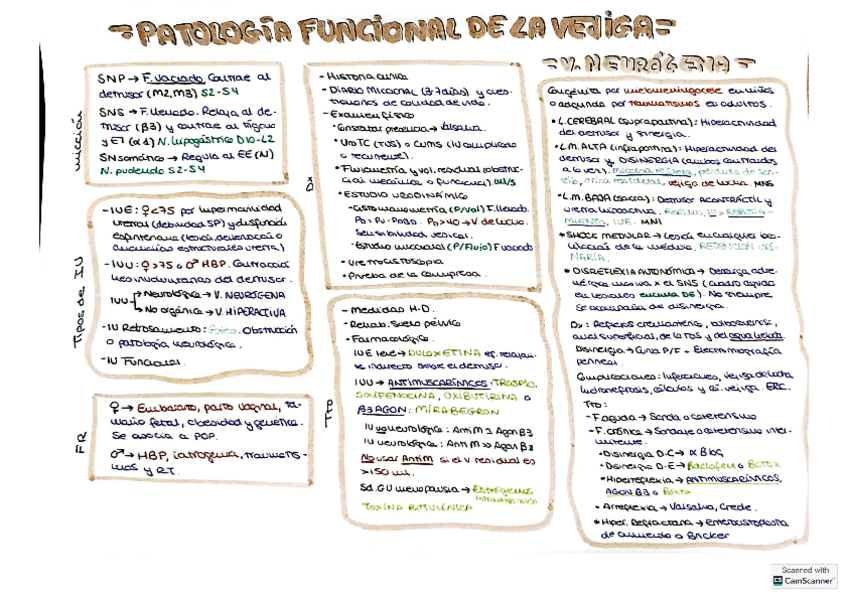 =PATOLOGÍA FUNCIONAL DE LA VEJIGA=
micción
SNP → F. vaciado. Contrae al
detrusor (M2, M3) S2-S4
SNS → F. llenado. Relaja al de-
trusor (β3) y contrae al trígono
y EI (α1) N. hipogástrico D10-L2
SN somático → Regula al EE (N)
N. pudendo S2-S4
Tipos de IU
- IUE: ♀<75 por hipermovilidad
uretral (debilidad SP) y disfunción
esfinteriana (lesión, desnervación o
estructurales uretra)
- IUU: ♀>75 o ♂ HBP. Contracciones
involuntarias del detrusor.
IUU
Neurológica → V. NEURÓGENA
No orgánica → V. HIPERACTIVA
- IU Rebosamiento: Goteo. Obstrucción
o patología neurológica.
- IU Funcional.
FR
♀ → Embarazo, parto vaginal, ta-
maño fetal, obesidad y genética.
Se asocia a POP.
♂ → HBP, iatrogenia, traumatis-
mos y RT.
Dx
- Historia clínica
- Diario Miccional (3-7 días) y cues-
tionarios de calidad de vida.
- Examen físico
• Valsalva.
• UroTC (TUS) o CUMS (IU complicada
o recurrente).
• Flujometría y vol. residual (obstruc-
ción mecánica o funcional) ml/s
• ESTUDIO URODINÁMICO
- Cistomanometría (P/Vol) F. llenado.
PD = PV - PABD. PD > 40 → V. de lucha.
Sensibilidad vesical.
- Estudio miccional (P/Flujo) F vaciado
- Uretrocistoscopia
- Prueba de la compresa.
Tto
- Medidas H-D.
- Rehab. Suelo pélvico
- Farmacológico.
IUE leve → DULOXETINA ef. relajan-
te indirecto sobre el detrusor.
IUU → ANTIMUSCARÍNICOS: TROSPIO,
SOLIFENACINA, OXIBUTININA o
β3 AGON: MIRABEGRON
IU no neurológica: AntiM = Agon β3
IU neurológica: AntiM >> Agon β3
No usar AntiM si el V. residual es
>150 mL.
Sd. GU menopausia → Estrógenos
intravaginales
TOXINA BOTULÍNICA
=V. NEURÓGENA=
Congénita por mielomeningocele en niños
o adquirida por traumatismos en adultos.
• L. CEREBRAL (suprapontina): Hiperactividad
del detrusor y sinergia.
• L.M. ALTA (infrapontina): Hiperactividad del
detrusor y DISINERGIA (ambos contraídos
a la vez). Micción refleja, pérdida de sen-
sib, orina residual, vejiga de lucha. MNS
• L.M. BAJA (sacra): Detrusor acontráctil y
uretra hipoactiva. Residuo, IU x REBOSA-
MIENTO, IUE. MNI
• SHOCK MEDULAR → Lesión en cualquier lo-
calización de la médula, RETENCIÓN URI-
NARIA.
• DISREFLEXIA AUTONÓMICA → Descarga adre-
nérgica masiva x el SNS (cuadro agudo
en lesiones encima D6). No siempre
se acompaña de disinergia.
Dx: Reflejos cremastérico, bulbocavernoso,
anal superficial, de la TOS y del agua helada.
Disinergia → Curva P/F + Electromiografía
perineal.
Complicaciones: Infecciones, vejiga de lucha
hidronefrosis, cálculos y cá. vejiga. ERC.
Tto:
- F. aguda → Sonda o cateterismo
- F. crónica → Sondaje o cateterismo inter-
mitente.
• Disinergia D-C → α Bloq
• Disinergia D-E → Baclofeno o BOTOX
• Hiperreflexia → ANTIMUSCARÍNICOS,
AGON β3 o Botox
• Arreflexia → Valsalva, Crede.
• Hiper. Refractaria → enterocistoplastia
de aumento o Bricker
Scanned with
CS CamScanner